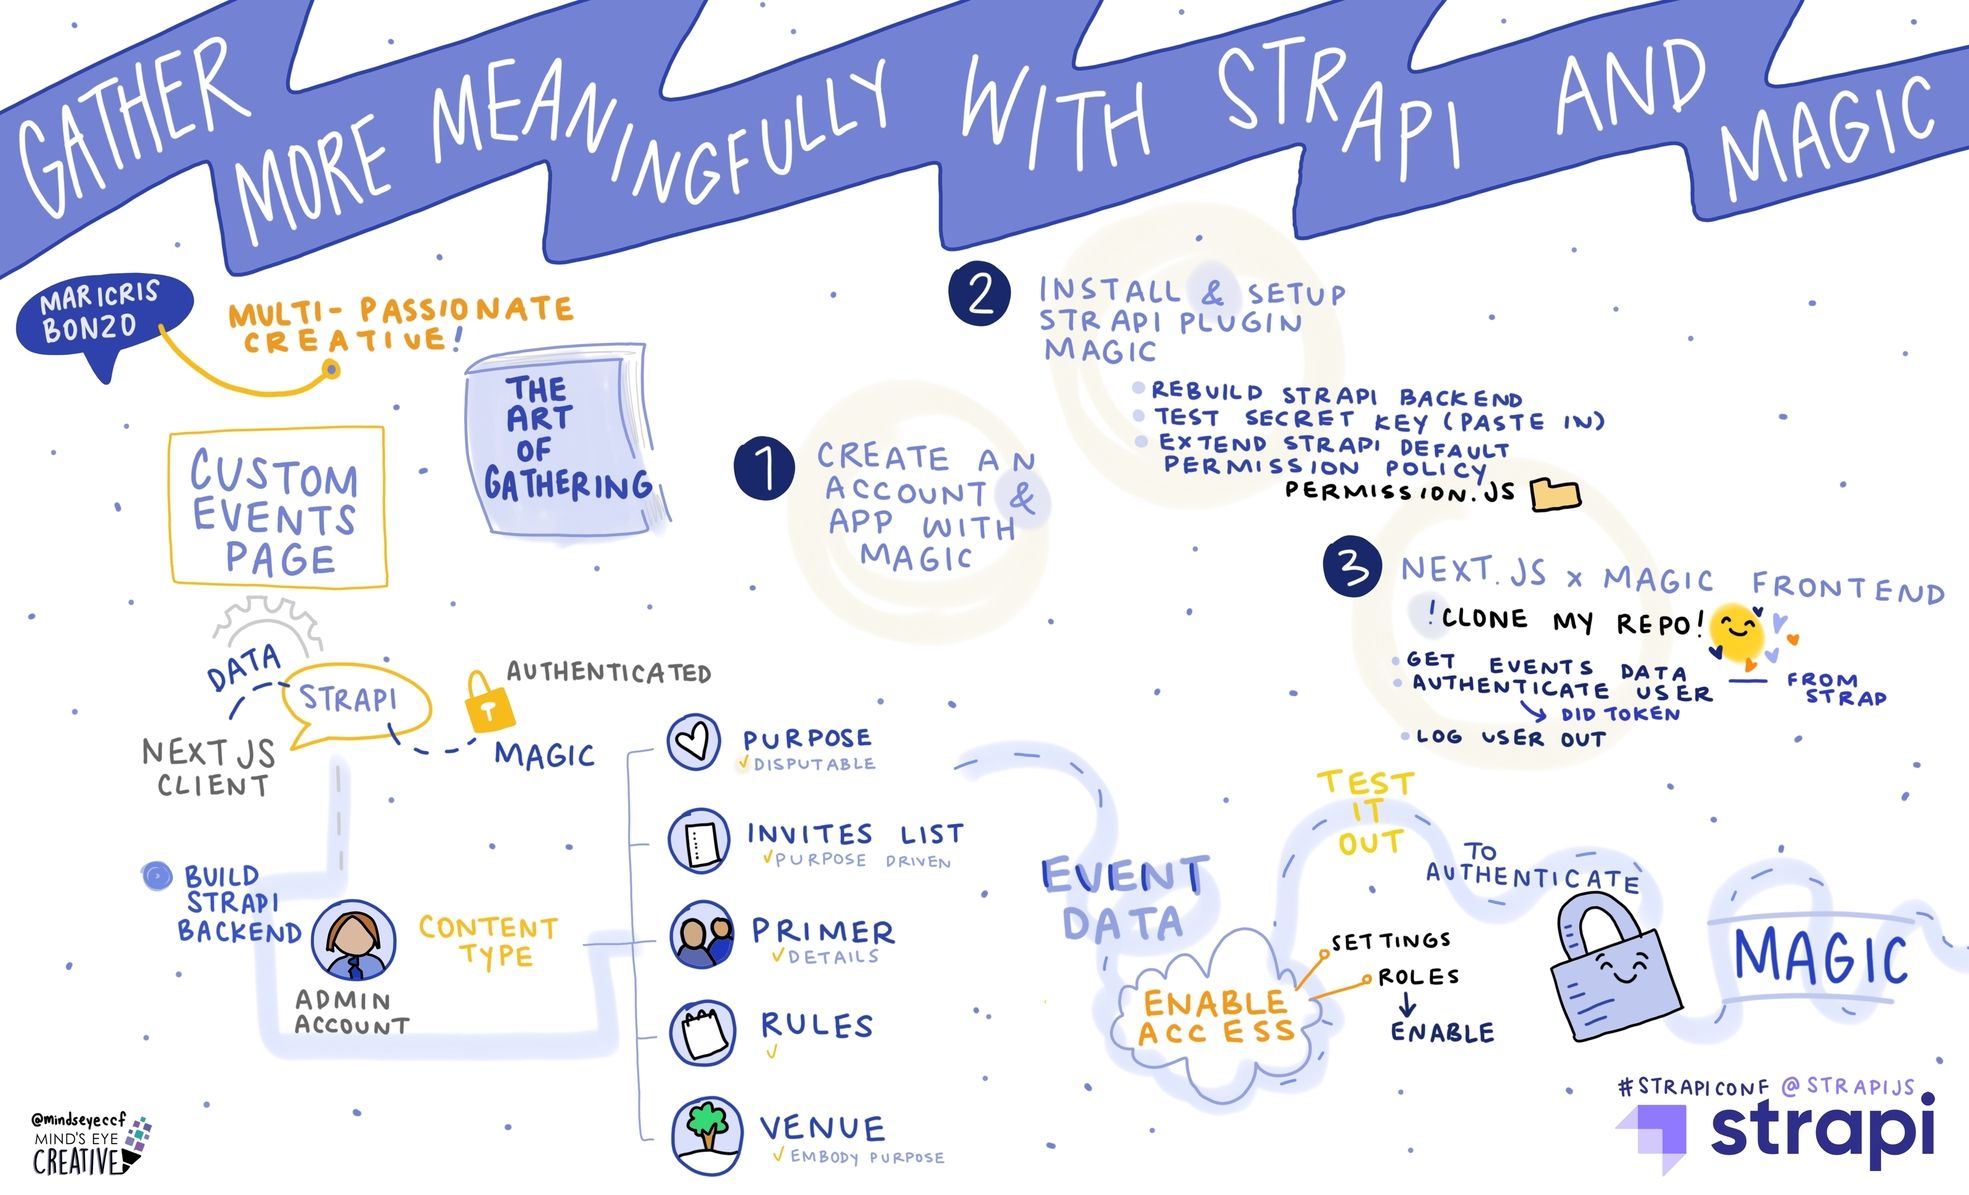 GATHER MORE MEANINGFULLY WITH STRAPI AND MAGIC
MARICRIS
BONZO
MULTI-PASSIONATE
CREATIVE!
THE
ART
OF
GATHERING
CUSTOM
EVENTS
PAGE
DATA
STRAPI
AUTHENTICATED
NEXT JS
CLIENT
MAGIC
BUILD
STRAPI
BACKEND
ADMIN
ACCOUNT
CONTENT
TYPE
PURPOSE
DISPUTABLE
INVITES LIST
PURPOSE DRIVEN
PRIMER
DETAILS
RULES
VENUE
EMBODY PURPOSE
1
CREATE AN
ACCOUNT &
APP WITH
MAGIC
2
INSTALL & SETUP
STRAPI PLUGIN
MAGIC
REBUILD STRAPI BACKEND
TEST SECRET KEY (PASTE IN)
EXTEND STRAPI DEFAULT
PERMISSION POLICY
PERMISSION.JS
3
NEXT.JS x MAGIC FRONTEND
!CLONE MY REPO!
GET EVENTS DATA
AUTHENTICATE USER — FROM
STRAP
DID TOKEN
LOG USER OUT
EVENT
DATA
ENABLE
ACCESS
SETTINGS
ROLES
ENABLE
TEST
IT
OUT
TO
AUTHENTICATE
MAGIC
#STRAPICONF @STRAPIJS
strapi
@mindseyeccf
MIND'S EYE
CREATIVE